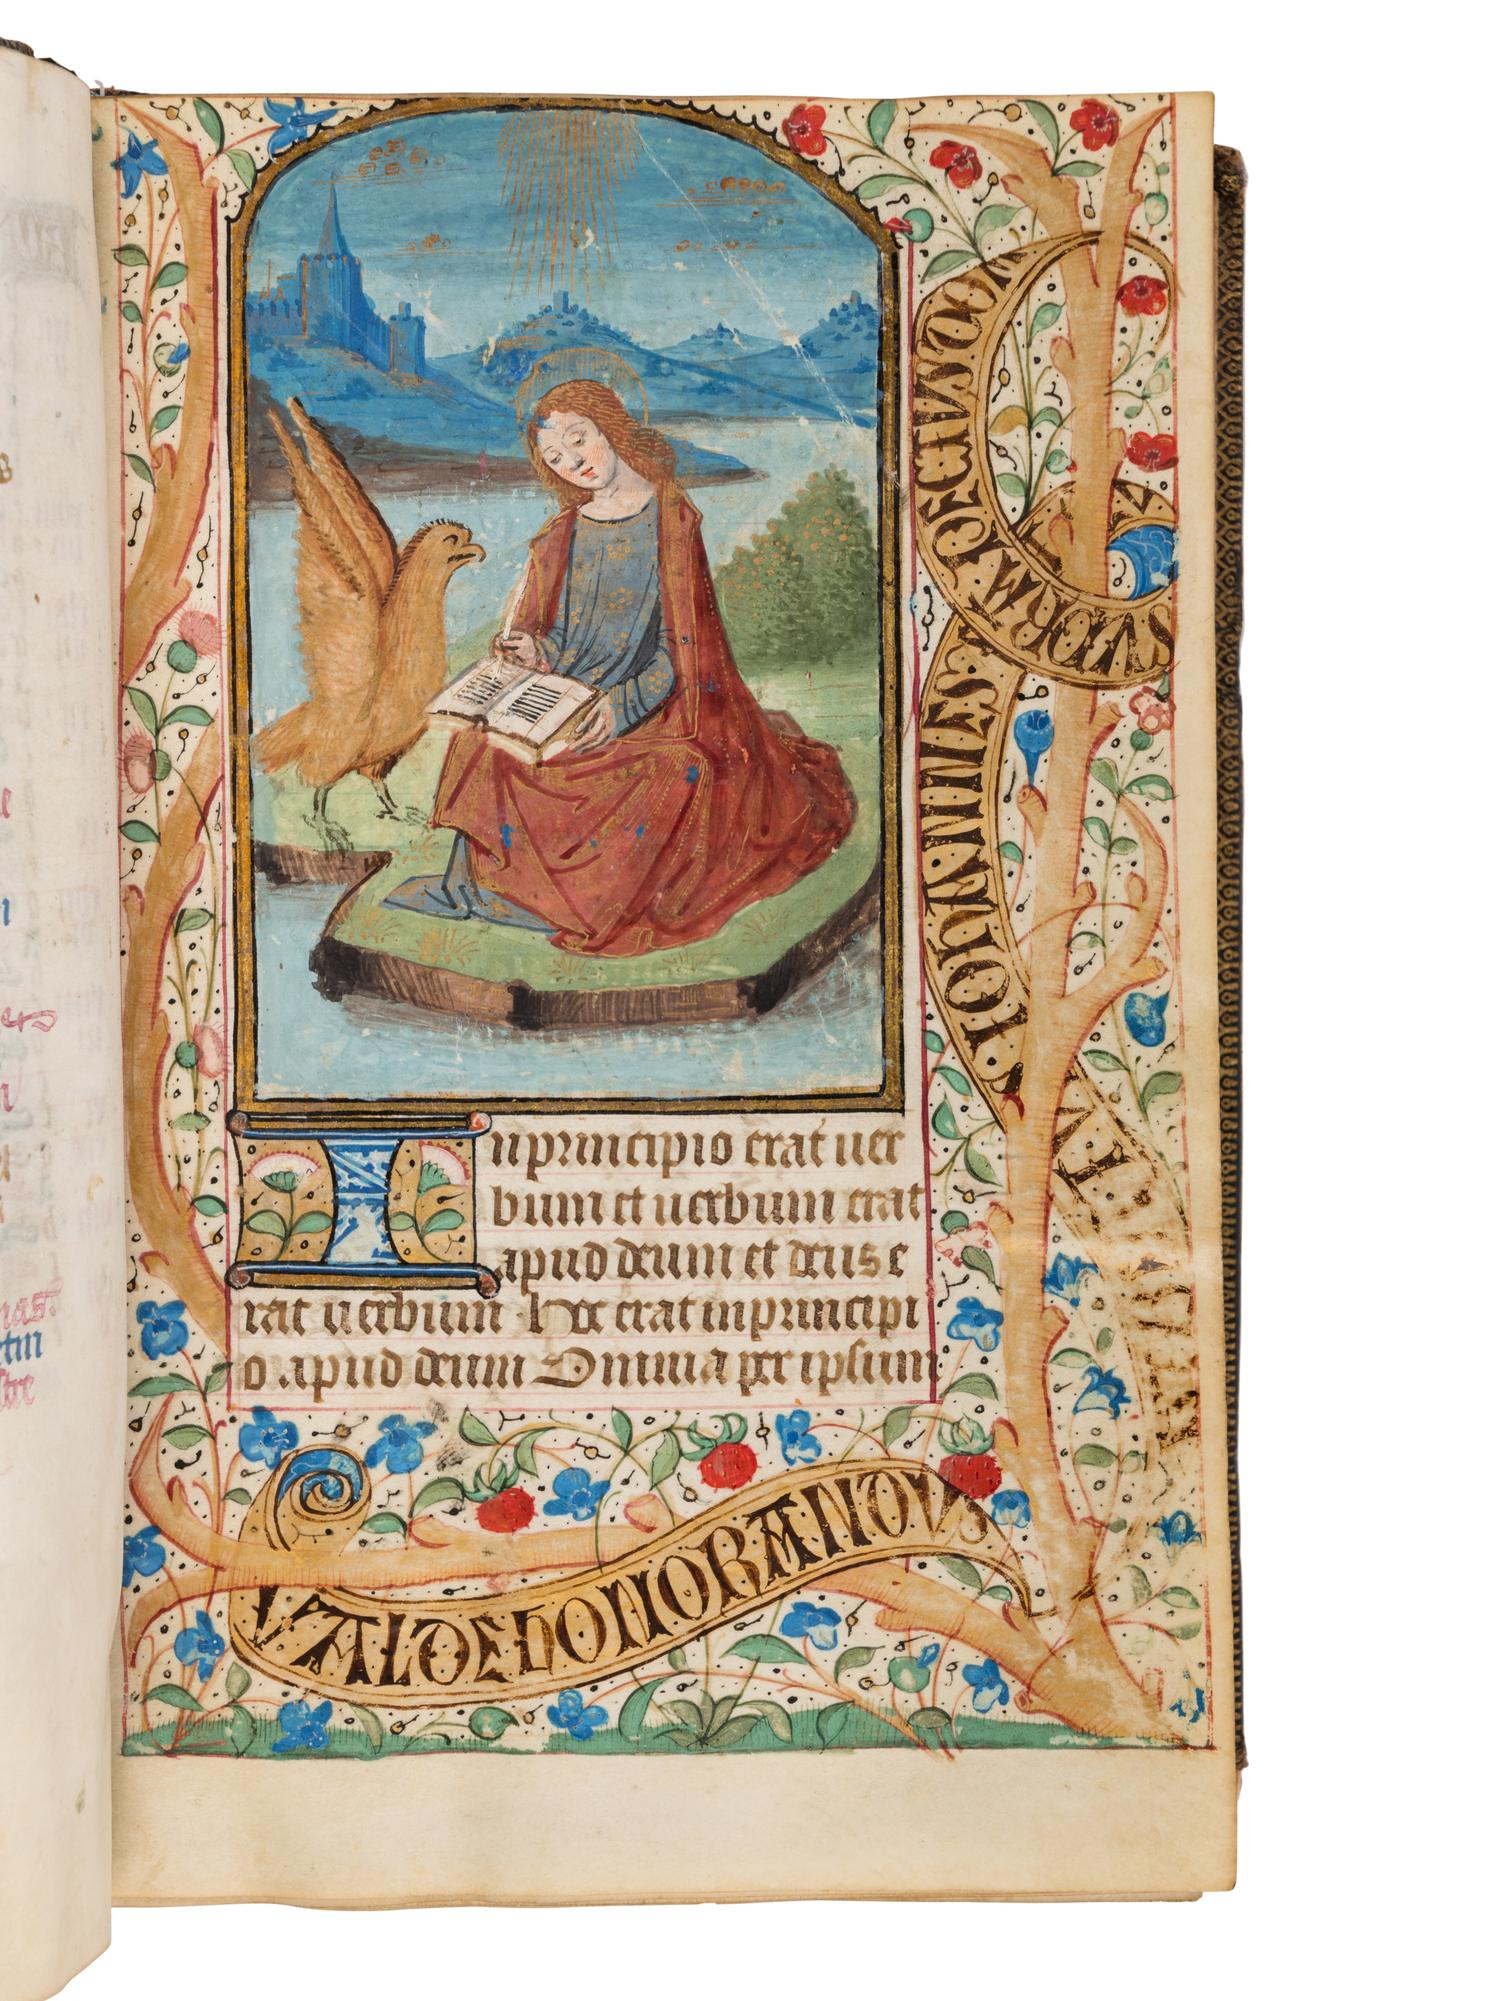 In principio erat uer
bum et uerbum erat
apud deum et deus e
rat uerbum hoc erat in principi
o apud deum Omnia per ipsum
VALDE HONORANDVS
S IOHANNES
PECTVS DOM